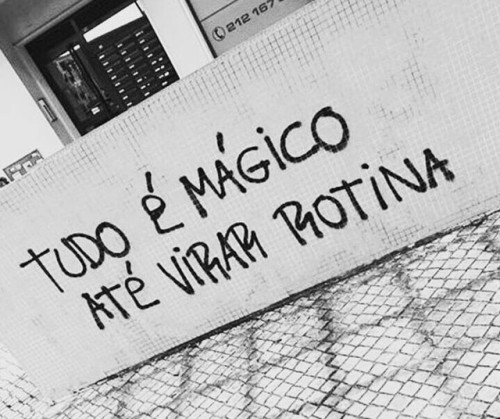 212 167
TUDO É MÁGICO
ATÉ VIRAR ROTINA